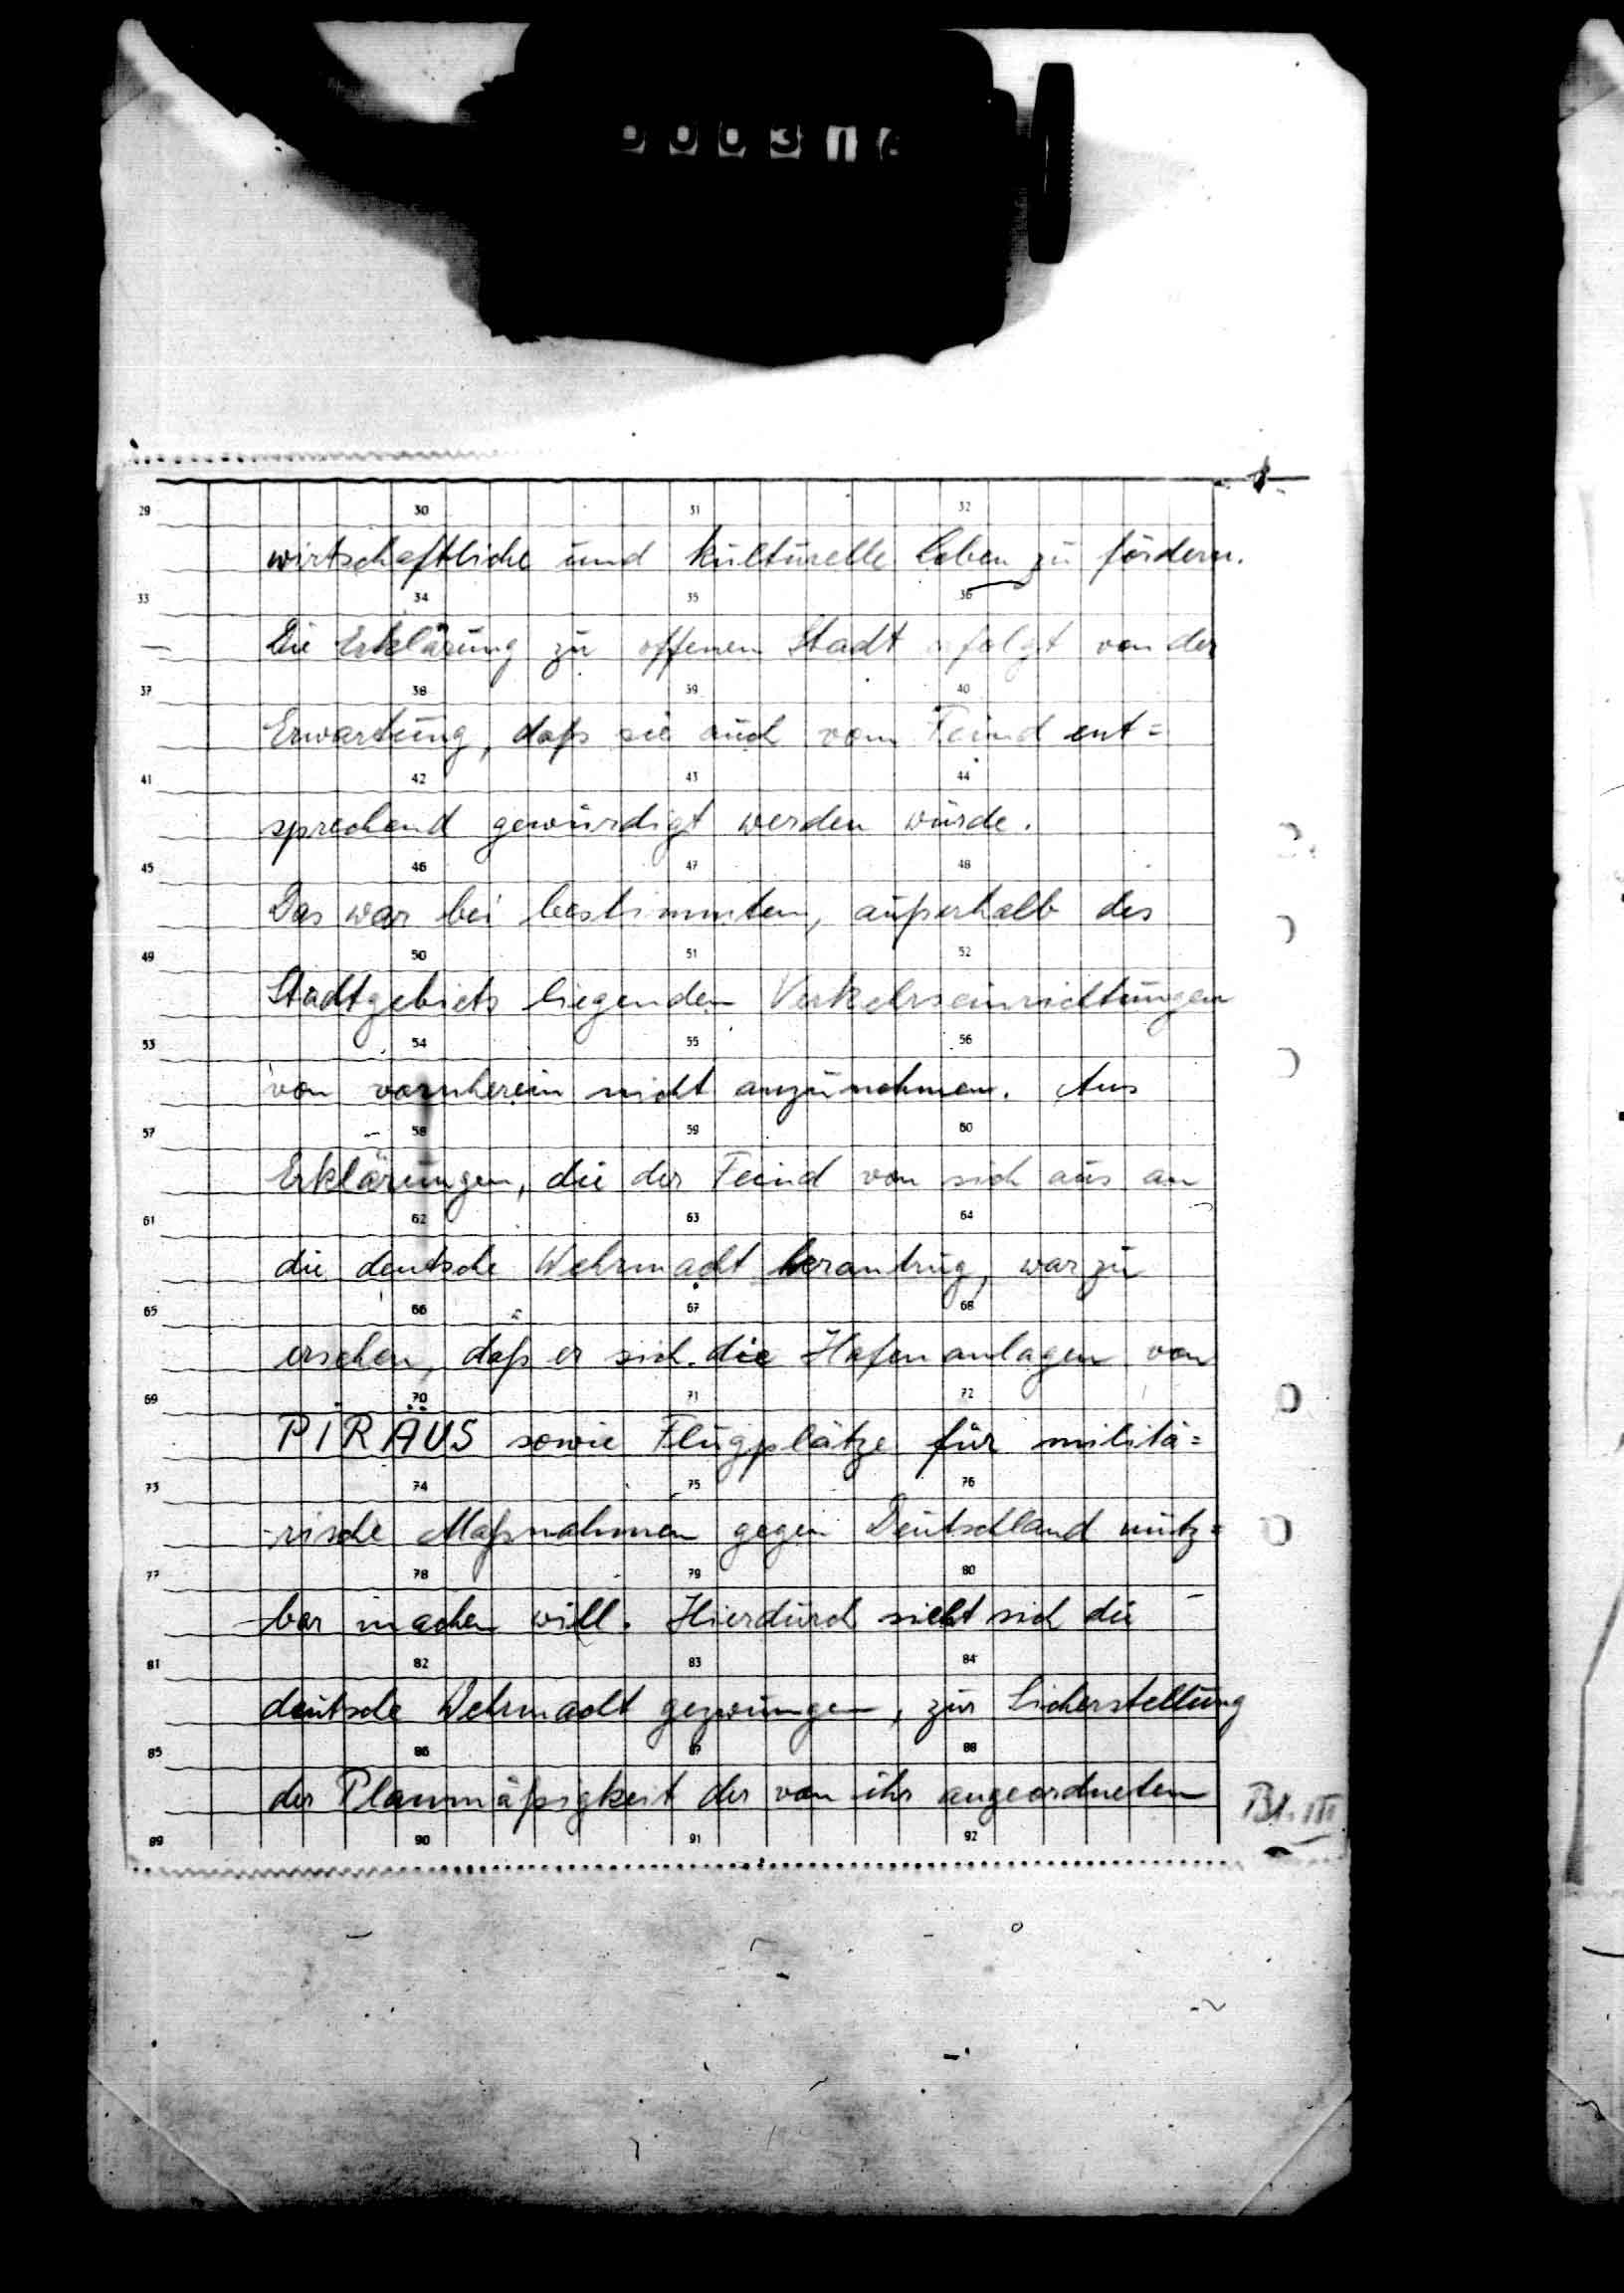 29 30 31 32
wirtschaftliche und kulturelle Leben zu fördern.
33 34 35 36
Die Erklärung zu offenen Stadt erfolgt von der
37 38 39 40
Erwartung, daß sie auch vom Feind ent=
41 42 43 44
sprechend gewürdigt werden würde.
45 46 47 48
Das war bei bestimmten, außerhalb des
49 50 51 52
Stadtgebiets liegenden Verkehrseinrichtungen
53 54 55 56
von vornherein nicht anzunehmen. Aus
57 58 59 60
Erklärungen, die der Feind von sich aus an
61 62 63 64
die deutsche Wehrmacht herantrug, war zu
65 66 67 68
ersehen, daß er sich die Hafenanlagen von
69 70 71 72
PIRÄUS sowie Flugplätze für militä=
73 74 75 76
rische Maßnahmen gegen Deutschland nutz=
77 78 79 80
bar machen will. Hierdurch sieht sich die
81 82 83 84
deutsche Wehrmacht gezwungen, zur Sicherstellung
85 86 87 88
der Planmäßigkeit der von ihr angeordneten
Bl. III
89 90 91 92